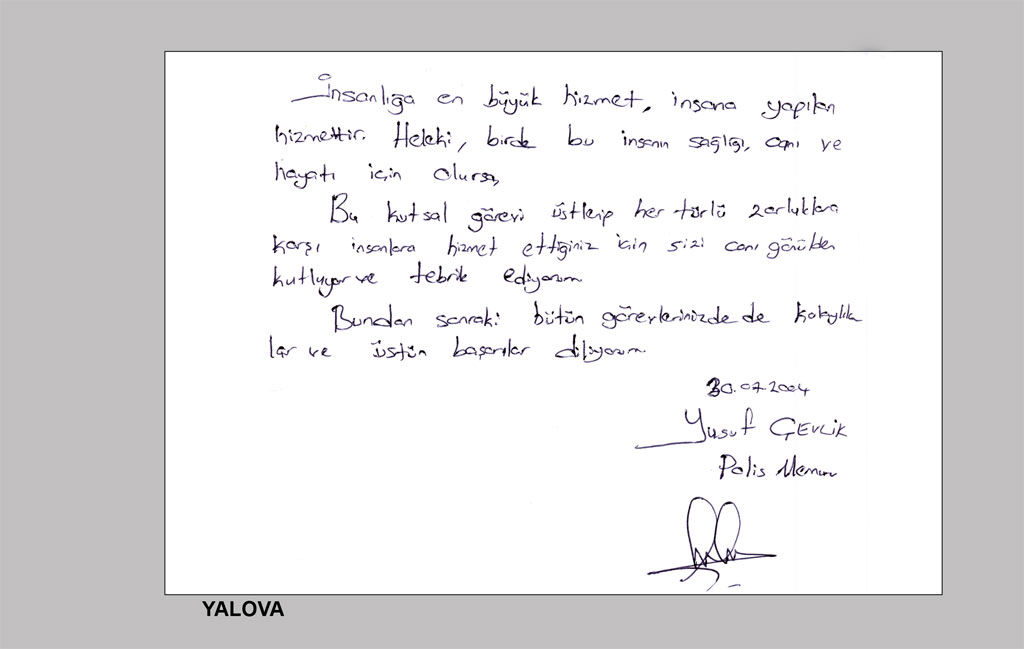 İnsanlığa en büyük hizmet, insana yapılan
hizmettir. Heleki, birde bu insanın sağlığı, canı ve
hayatı için olursa,
Bu kutsal görevi üstlenip her türlü zorluklara
karşı insanlara hizmet ettiğiniz için sizi canı gönülden
kutluyor ve tebrik ediyorum
Bundan sonraki bütün görevlerinizde de kolaylık
lar ve üstün başarılar diliyorum.
30.07.2004
Yusuf ÇEVLİK
Polis Memuru
YALOVA